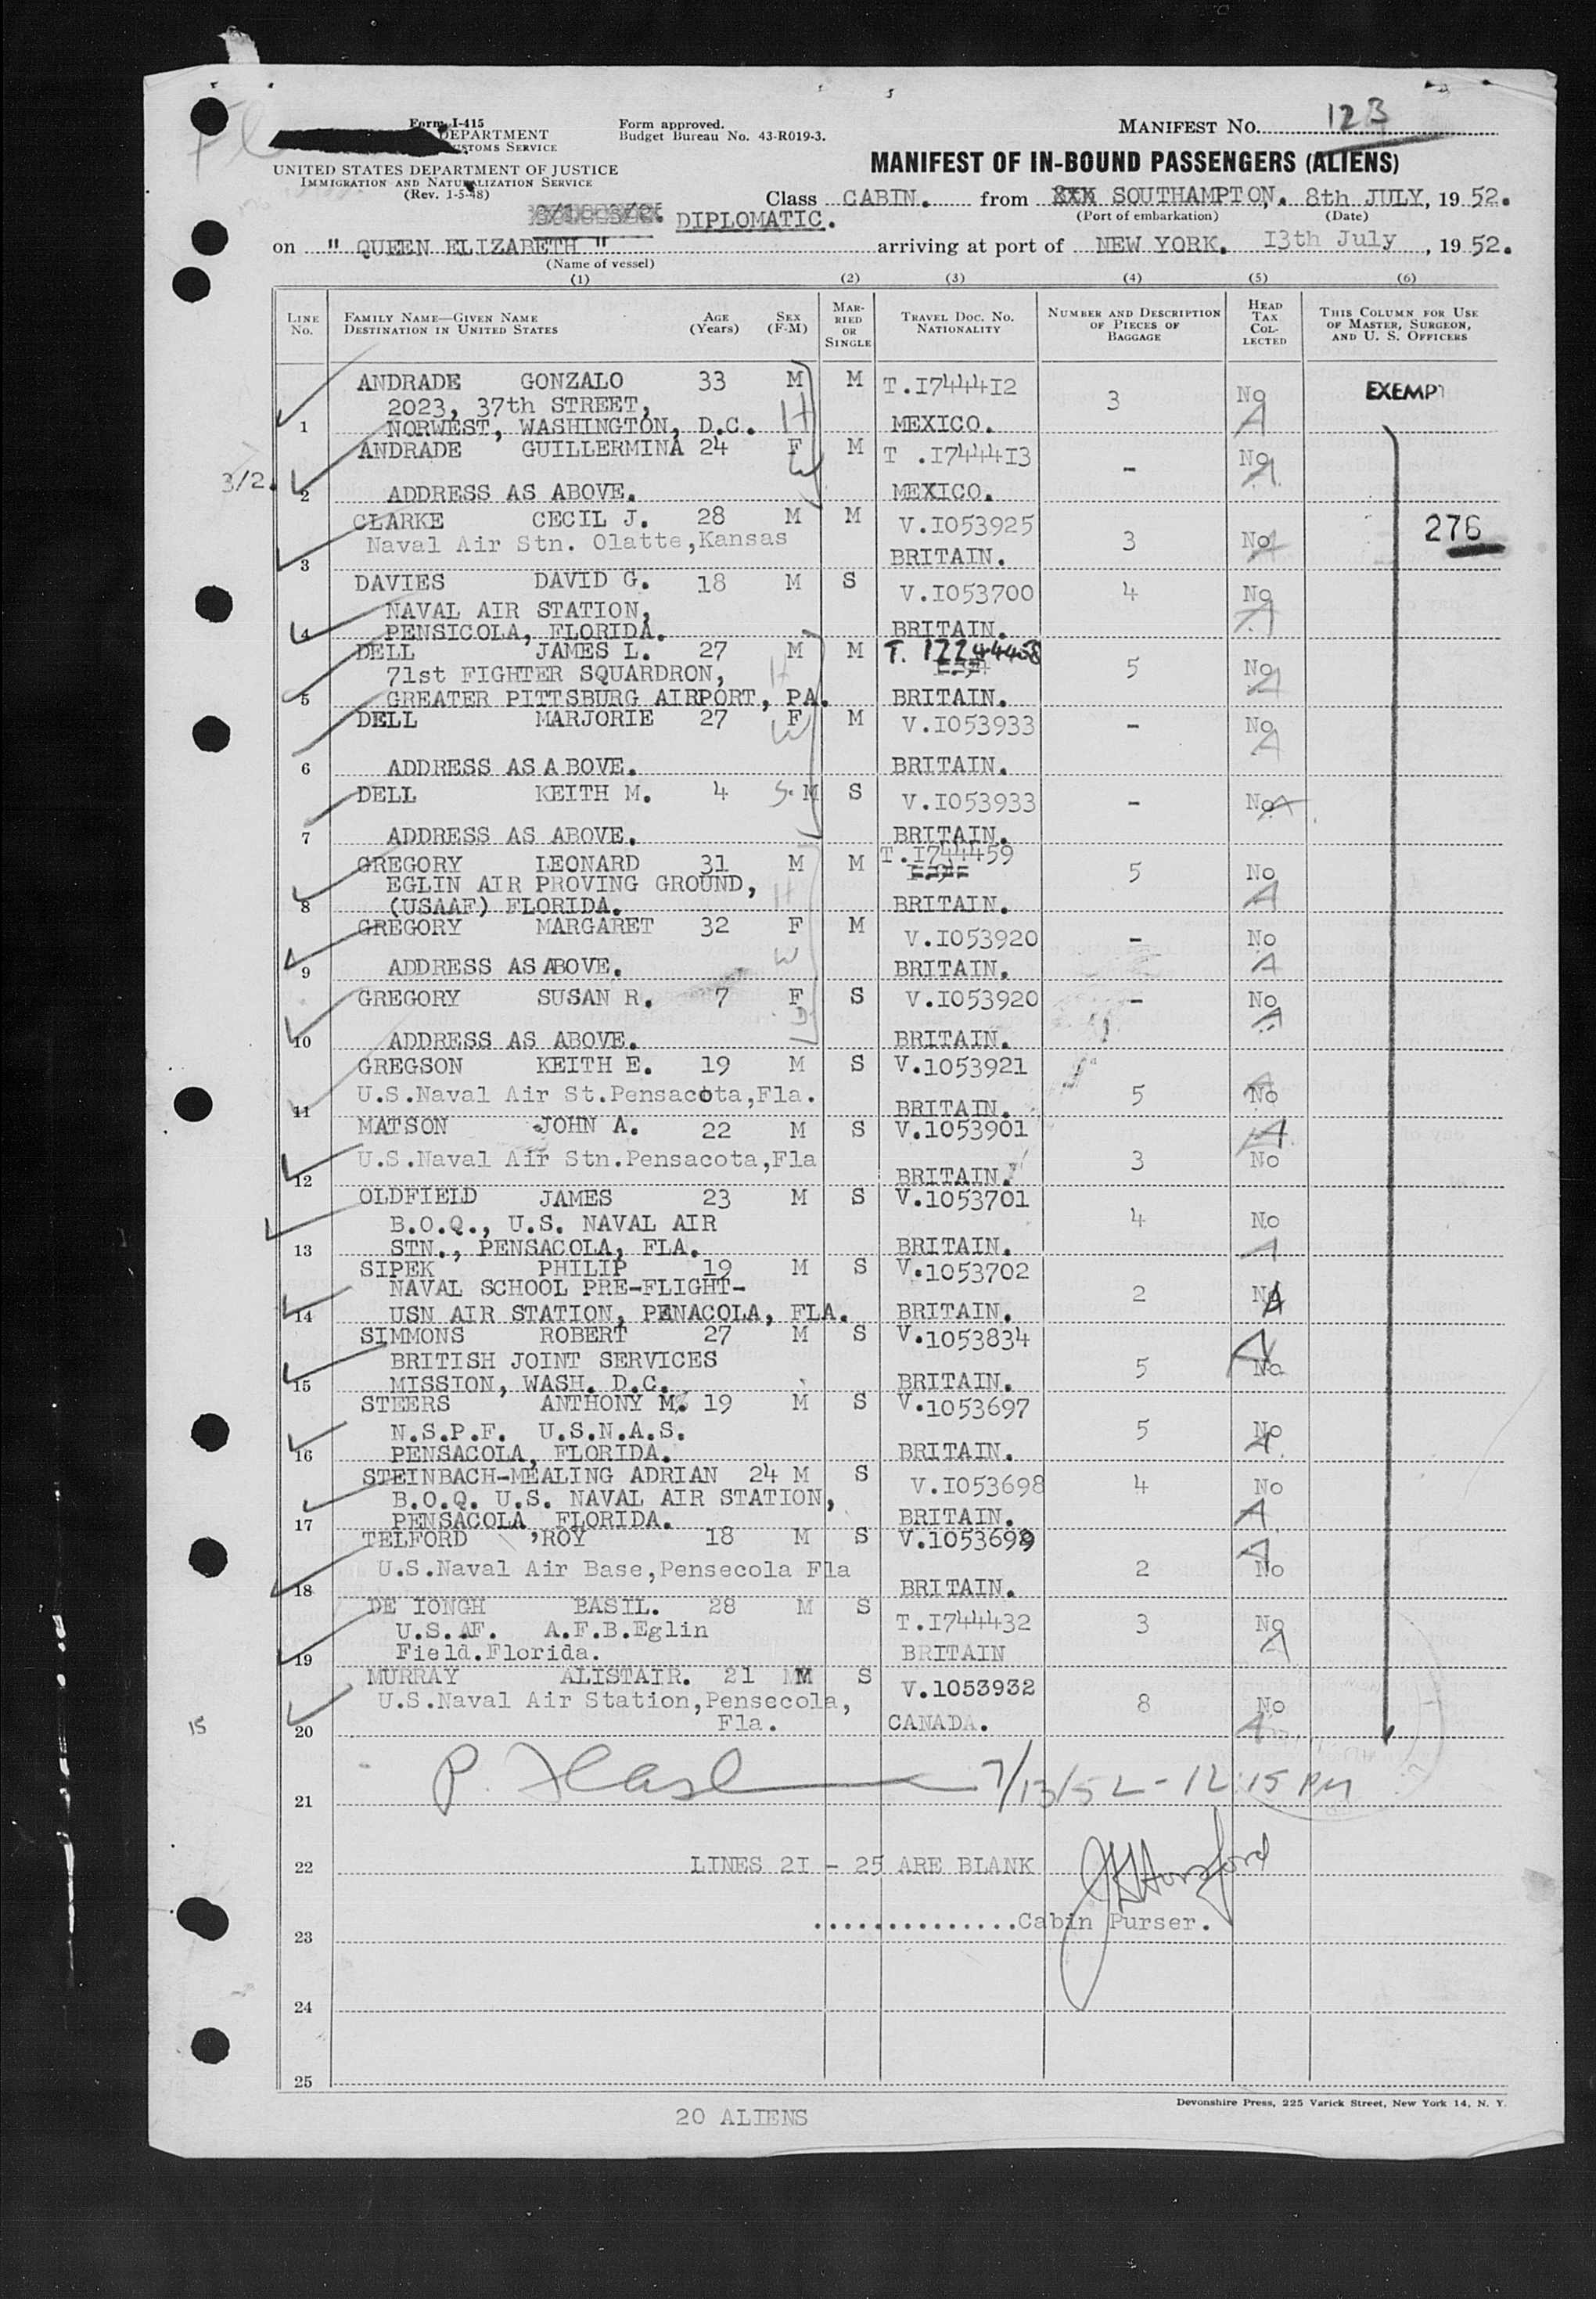 Form I-415
DEPARTMENT
CUSTOMS SERVICE
UNITED STATES DEPARTMENT OF JUSTICE
IMMIGRATION AND NATURALIZATION SERVICE
(Rev. 1-5-48)
Form approved.
Budget Bureau No. 43-R019-3.
MANIFEST NO. 123
MANIFEST OF IN-BOUND PASSENGERS (ALIENS)
Class CABIN. from SOUTHAMPTON. 8th JULY, 1952.
(Port of embarkation) (Date)
DIPLOMATIC.
on " QUEEN ELIZABETH " arriving at port of NEW YORK. I3th July, 1952.
(Name of vessel)
(1) (2) (3) (4) (5) (6)
LINE No. FAMILY NAME—GIVEN NAME DESTINATION IN UNITED STATES AGE (Years) SEX (F-M) MARRIED OR SINGLE TRAVEL DOC. NO. NATIONALITY NUMBER AND DESCRIPTION OF PIECES OF BAGGAGE HEAD TAX COLLECTED THIS COLUMN FOR USE OF MASTER, SURGEON, AND U. S. OFFICERS
ANDRADE GONZALO 33 M M T.I7444I2 3 No EXEMPT
2023, 37th STREET, H A
1 NORWEST, WASHINGTON, D.C. MEXICO.
ANDRADE GUILLERMINA 24 F M T .I7444I3 - No
3/2. W A
2 ADDRESS AS ABOVE. MEXICO.
CLARKE CECIL J. 28 M M V.I053925 3 No A 276
Naval Air Stn. Olatte,Kansas
3 BRITAIN.
DAVIES DAVID G. 18 M S V.I053700 4 No
NAVAL AIR STATION, A
4 PENSICOLA, FLORIDA. BRITAIN.
DELL JAMES L. 27 M M 5 No
71st FIGHTER SQUARDRON, H A
5 GREATER PITTSBURG AIRPORT, PA. BRITAIN.
DELL MARJORIE 27 F M V.I053933 - No
W A
6 ADDRESS AS A BOVE. BRITAIN.
DELL KEITH M. 4 S. M S V.I053933 - No A
7 ADDRESS AS ABOVE. BRITAIN.
GREGORY LEONARD 31 M M T.I744459 5 No
EGLIN AIR PROVING GROUND, H A
8 (USAAF) FLORIDA. BRITAIN.
GREGORY MARGARET 32 F M V.I053920 - No
W A
9 ADDRESS AS ABOVE. BRITAIN.
GREGORY SUSAN R. 7 F S V.I053920 - No
D A
10 ADDRESS AS ABOVE. BRITAIN.
GREGSON KEITH E. 19 M S V.1053921 5 A No
U.S.Naval Air St.Pensacota,Fla.
11 BRITAIN.
MATSON JOHN A. 22 M S V.1053901 3 A No
U.S.Naval Air Stn.Pensacota,Fla
12 BRITAIN.
OLDFIELD JAMES 23 M S V.1053701 4 No
B.O.Q., U.S. NAVAL AIR A
13 STN., PENSACOLA, FLA. BRITAIN.
SIPEK PHILIP 19 M S V.1053702 2 No A
NAVAL SCHOOL PRE-FLIGHT-
14 USN AIR STATION, PENACOLA, FLA. BRITAIN.
SIMMONS ROBERT 27 M S V.1053834 5 A No
BRITISH JOINT SERVICES
15 MISSION, WASH. D.C. BRITAIN.
STEERS ANTHONY M. 19 M S V.1053697 5 No
N.S.P.F. U.S.N.A.S. A
16 PENSACOLA, FLORIDA. BRITAIN.
STEINBACH-MEALING ADRIAN 24 M S V.I053698 4 No
B.O.Q. U.S. NAVAL AIR STATION, A
17 PENSACOLA FLORIDA. BRITAIN.
TELFORD 'ROY 18 M S V.1053699 2 A No
U.S.Naval Air Base,Pensecola Fla
18 BRITAIN.
DE IONGH BASIL. 28 M S T.I744432 3 No
U.S.AF. A.F.B.Eglin A
19 Field.Florida. BRITAIN
MURRAY ALISTAIR. 21 M S V.1053932 8 No
U.S.Naval Air Station,Pensecola, A
15 20 Fla. CANADA.
21 P. 7/13/52 - 12:15 PM
22 LINES 2I - 25 ARE BLANK
23 ...............Cabin Purser.
24
25
20 ALIENS
Devonshire Press, 225 Varick Street, New York 14, N. Y.